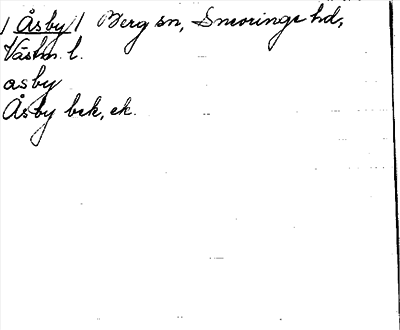 / Åsby / Berg sn, Snevringe hd,
Västm. l.
asby
Åsby bek, ek.